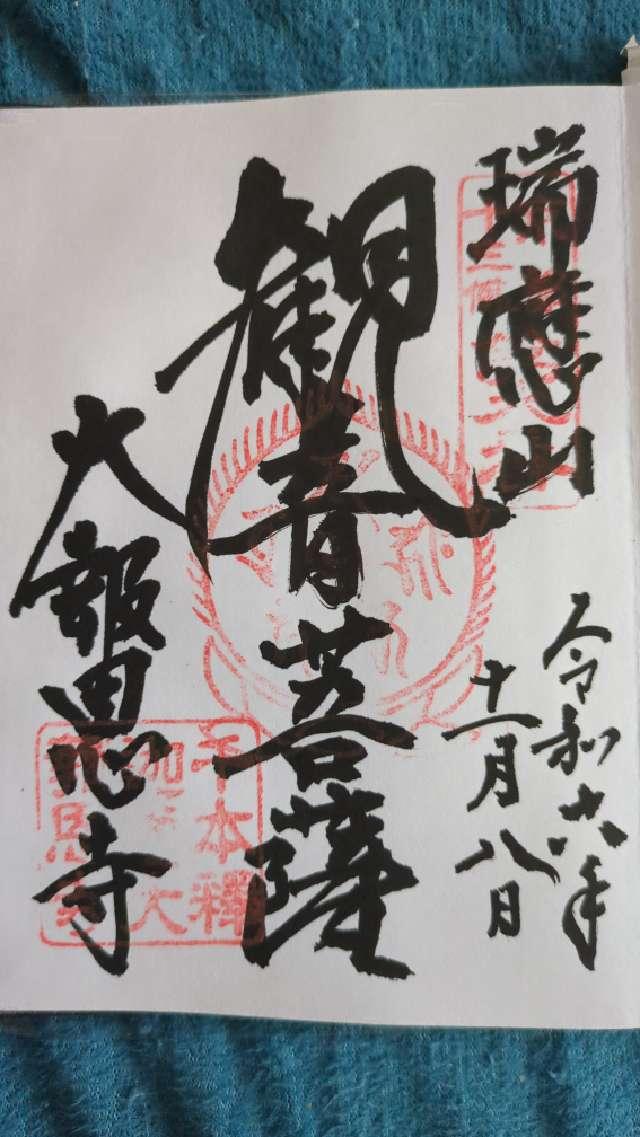 瑞應山
令和六年
十一月八日
観音菩薩
大報恩寺
千本釋
迦堂 大
報恩寺